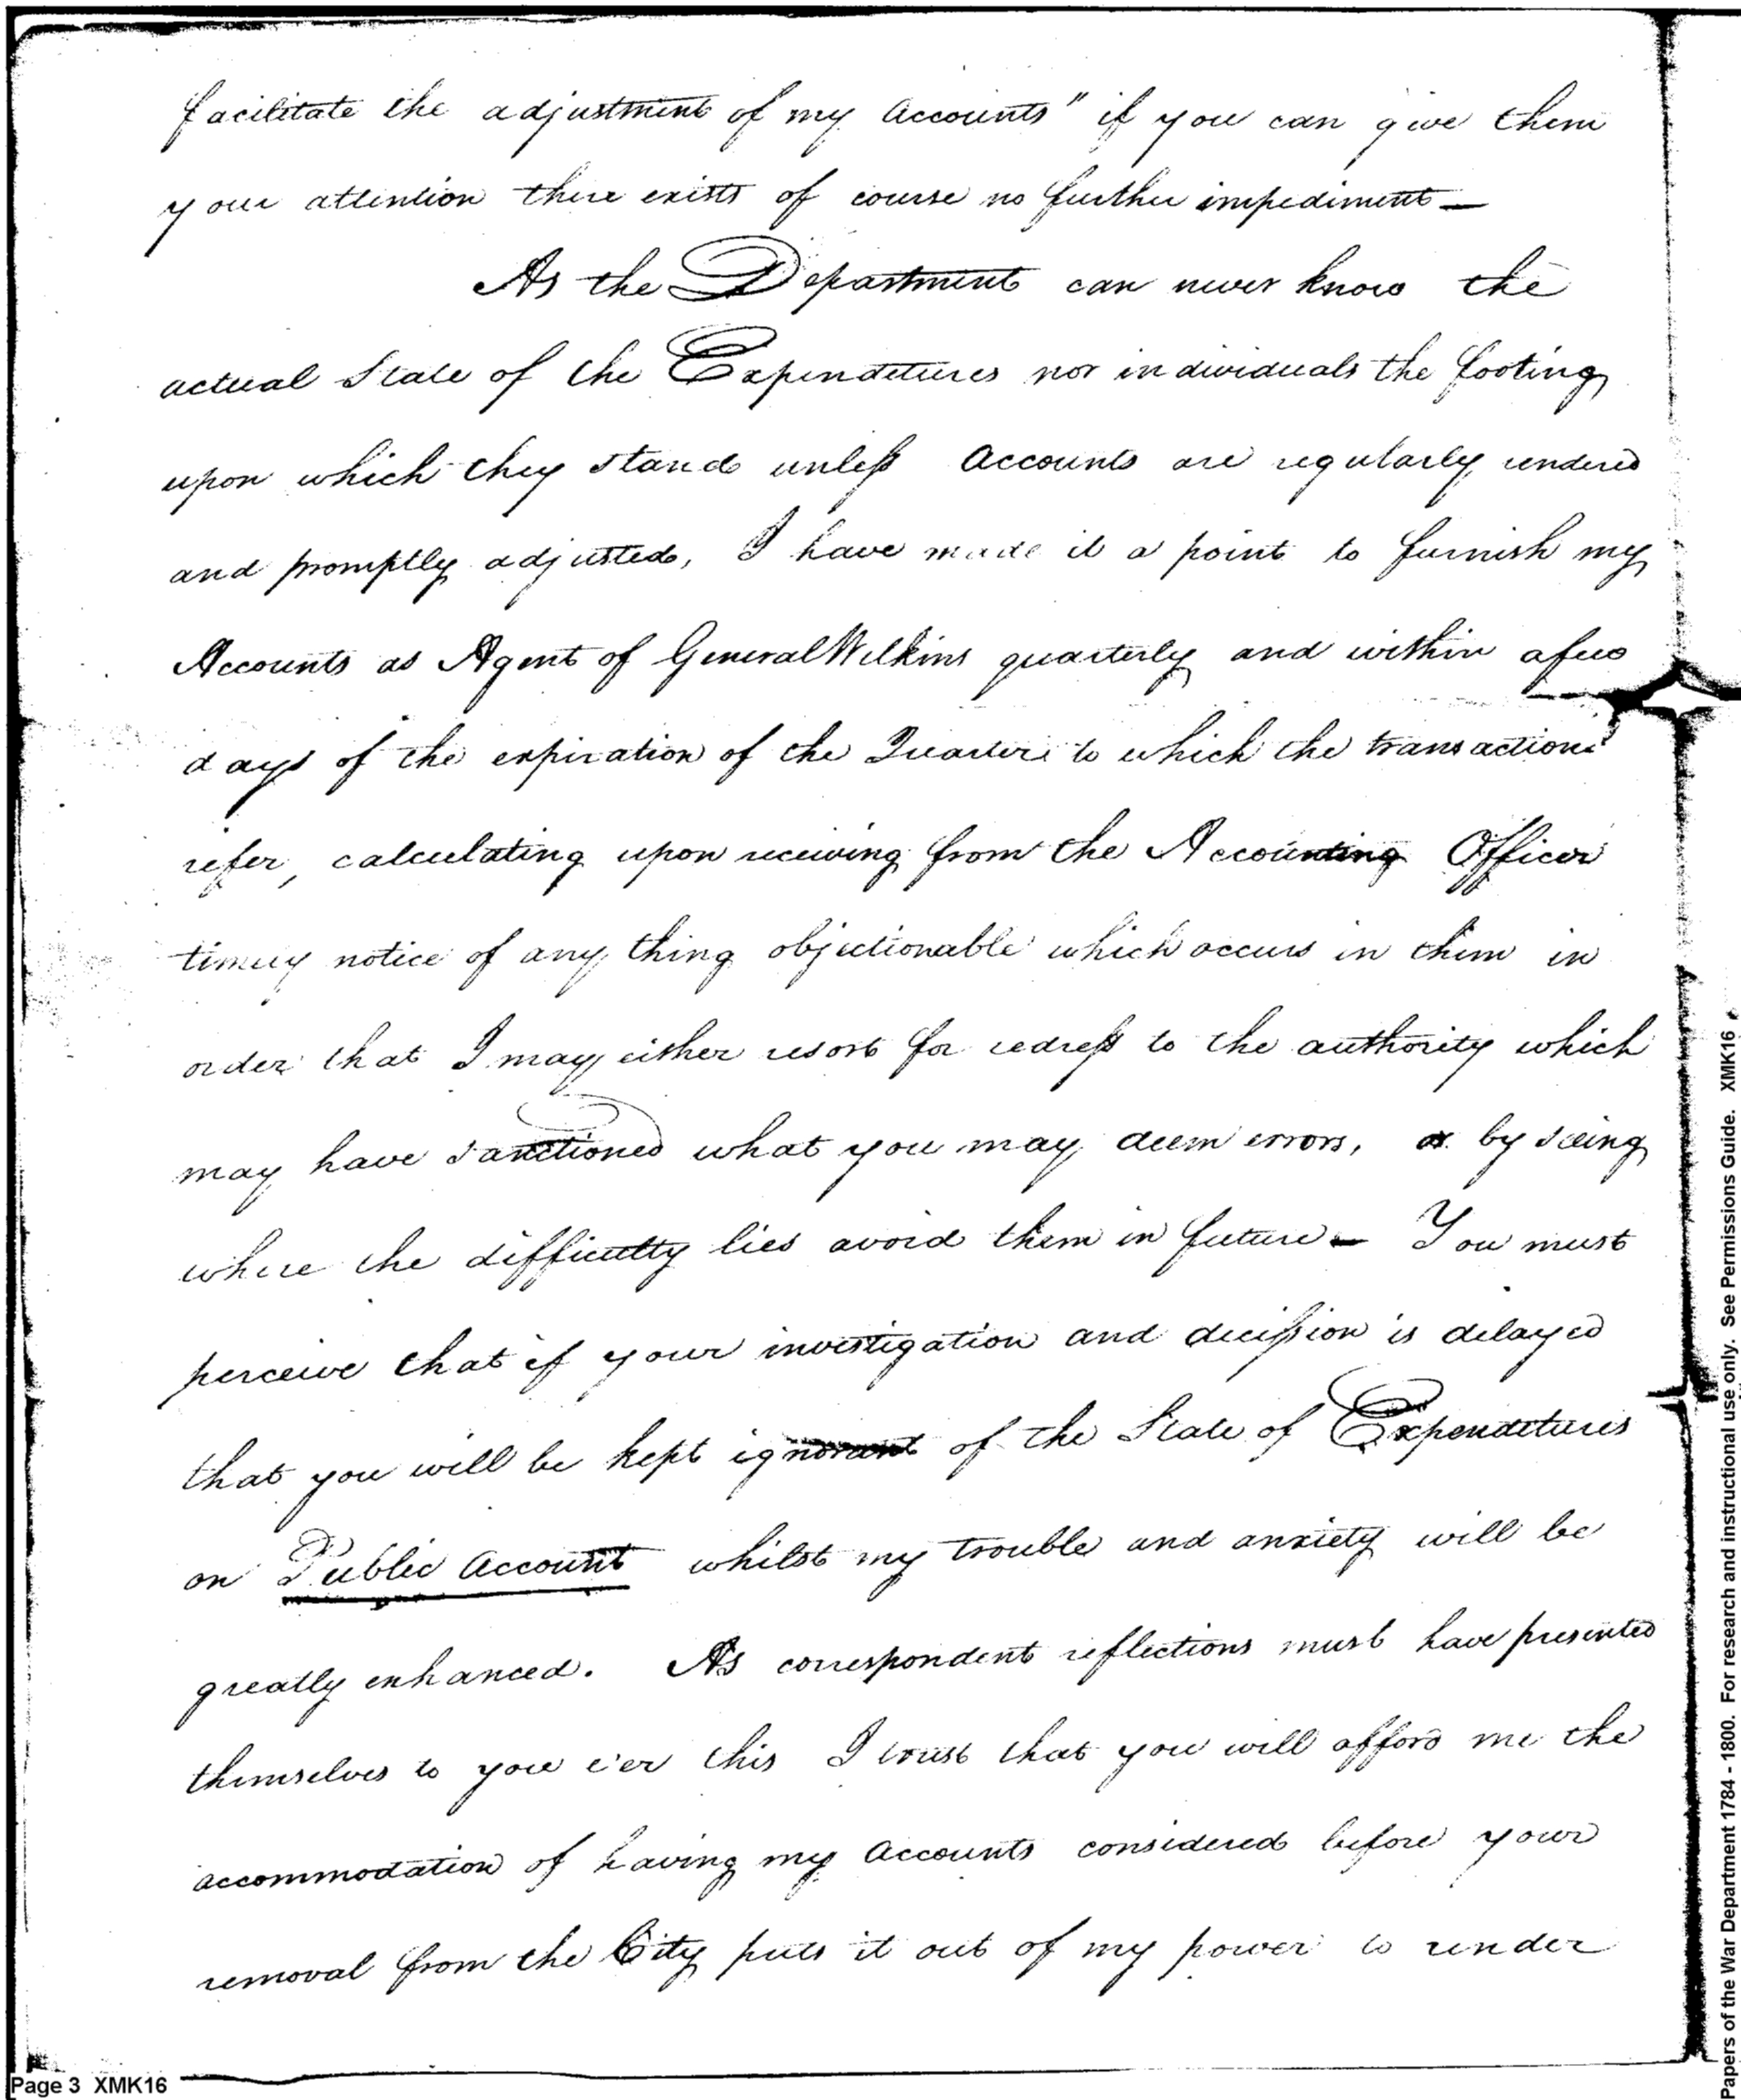 facilitate the adjustment of my Accounts" if you can give them
your attention there exists of course no further impediment —
As the Department can never know the
actual State of the Expenditures nor individuals the footing
upon which they stand unless Accounts are regularly rendered
and promptly adjusted, I have made it a point to furnish my
Accounts as Agent of General Wilkins quarterly and within a few
days of the expiration of the Quarter to which the transactions
refer, calculating upon receiving from the Accounting Officer
timely notice of any thing objectionable which occurs in them in
order that I may either resort for redress to the authority which
may have sanctioned what you may deem errors, or by seeing
where the difficulty lies avoid them in future — You must
perceive that if your investigation and decission is delayed
that you will be kept ignorant of the State of Expenditures
on Public Account whilst my trouble and anxiety will be
greatly enhanced. As correspondent reflections must have presented
themselves to you e'er this I trust that you will afford me the
accommodation of having my Accounts considered before your
removal from the City puts it out of my power to render
Page 3 XMK16
Papers of the War Department 1784 - 1800. For research and instructional use only. See Permissions Guide. XMK16